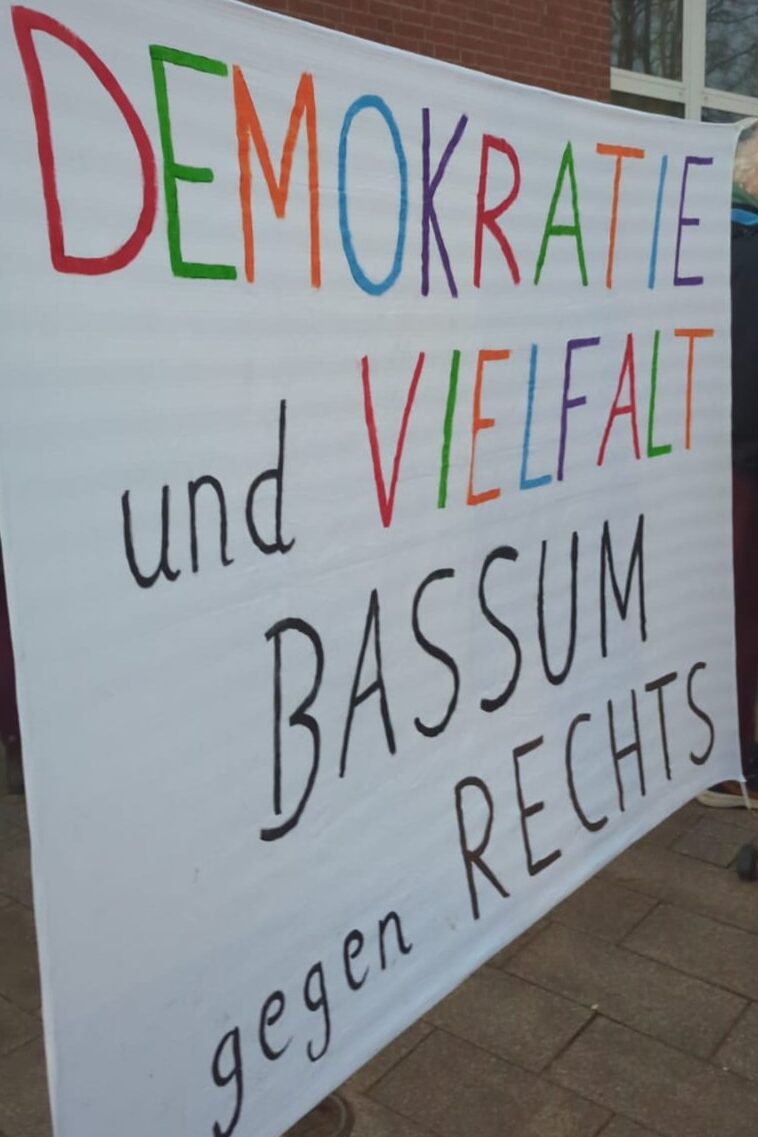 DEMOKRATIE
und VIELFALT
BASSUM
gegen RECHTS